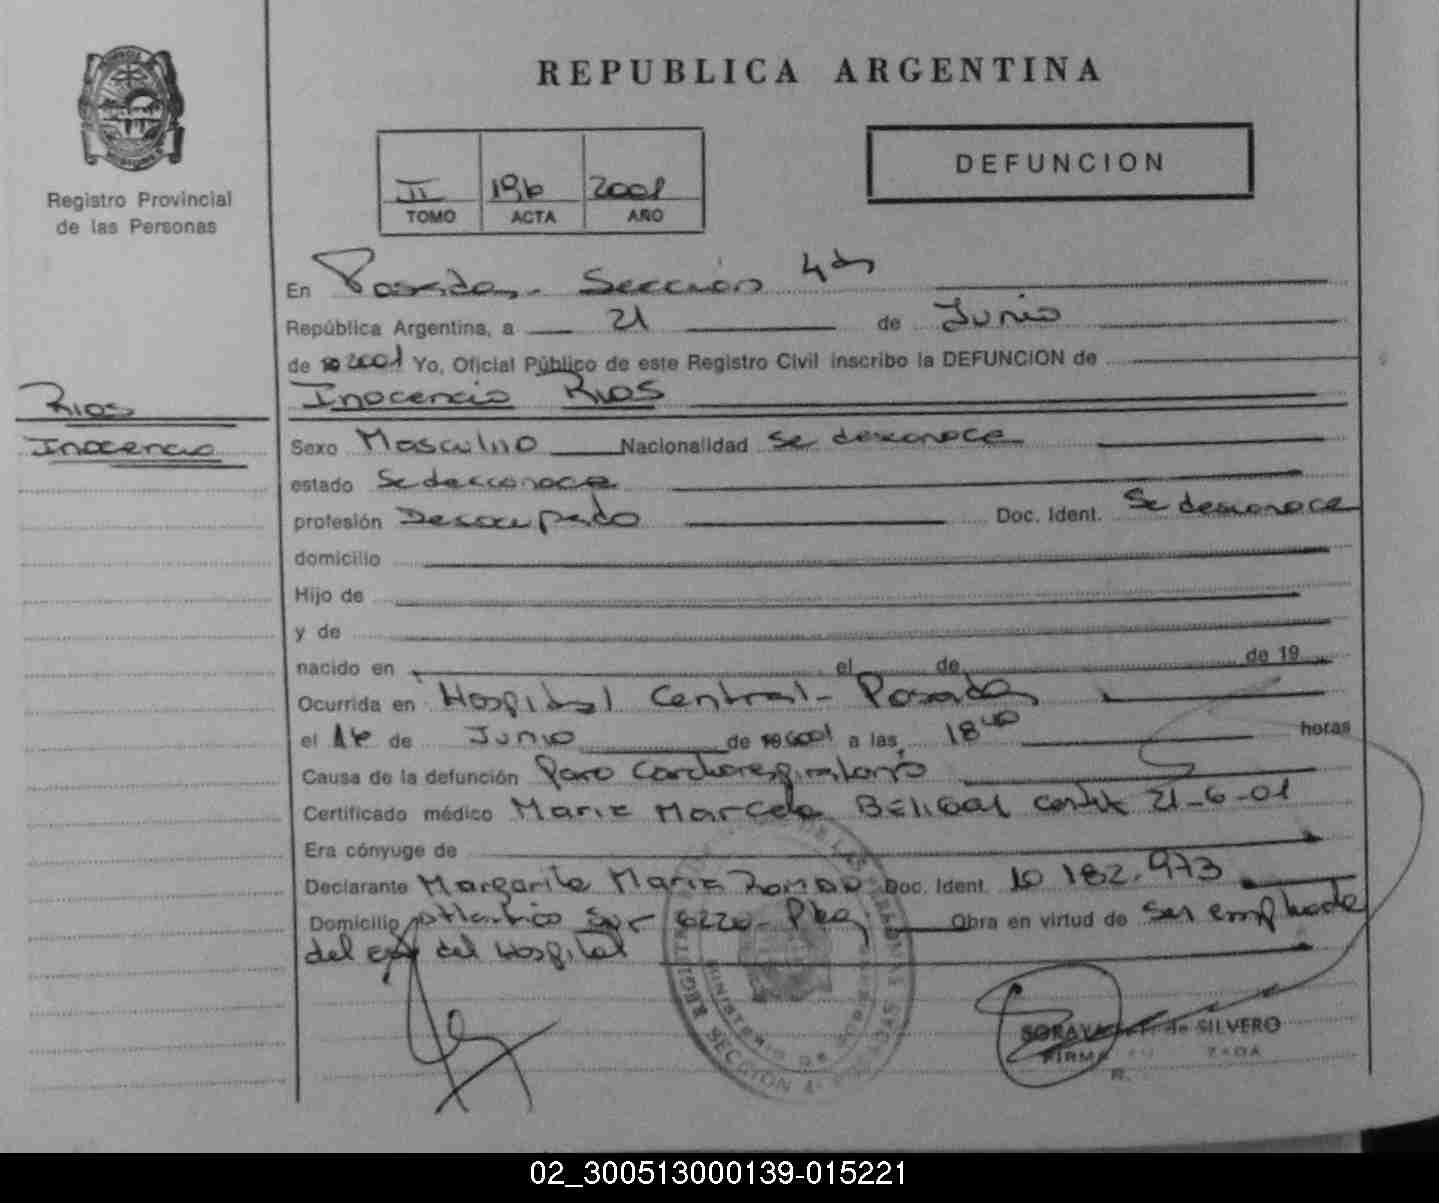 REPUBLICA ARGENTINA
Registro Provincial
de las Personas
II 196 2001
TOMO ACTA AÑO
DEFUNCION
En Posadas - Sección 4ta
República Argentina, a 21 de Junio
de 19 2001 Yo, Oficial Público de este Registro Civil inscribo la DEFUNCION de
Rios
Inocencio
Inocencio Rios
Sexo Masculino Nacionalidad se desconoce
estado Se desconoce
profesión Desocupado Doc. Ident. Se desconoce
domicilio
Hijo de
y de
nacido en el de de 19
Ocurrida en Hospital Central - Posadas
el de Junio de 19 2001 a las 18 40 horas
Causa de la defunción Paro Cardiorespiratorio
Certificado médico Maria Marcela 21-6-01
Era cónyuge de
Declarante Margarita Maria Doc. Ident. 10 182.973
Domicilio Atlantico Sur 6220 - Obra en virtud de ser empleada
del del Hospital
SORAYA de SILVERO
FIRMA
REGISTRO DE LAS PERSONAS
MINISTERIO DE GOBIERNO
SECCION 4ª POSADAS
02_300513000139-015221